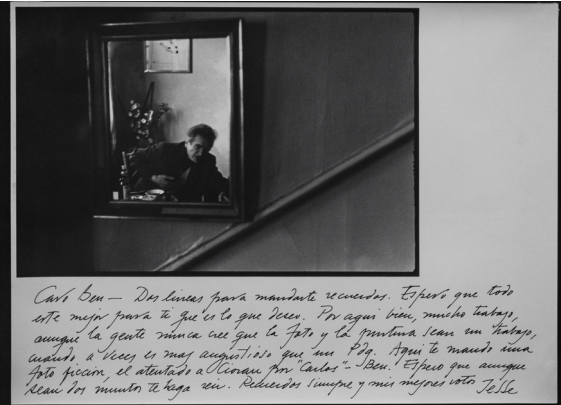 Caro Ben — Dos lineas para mandarte recuerdos. Espero que todo
este mejor para ti que es lo que deseo. Por aqui bien, mucho trabajo,
aunque la gente nunca cree que la foto y la pintura sean un trabajo,
cuando, a veces es mas angustioso que un Pdq. Aqui te mando una
foto ficción, el atentado a Cioran por "Carlos" - Ben. Espero que aunque
sean dos minutos te haga reir. Recuerdos siempre y mis mejores votos Jesse